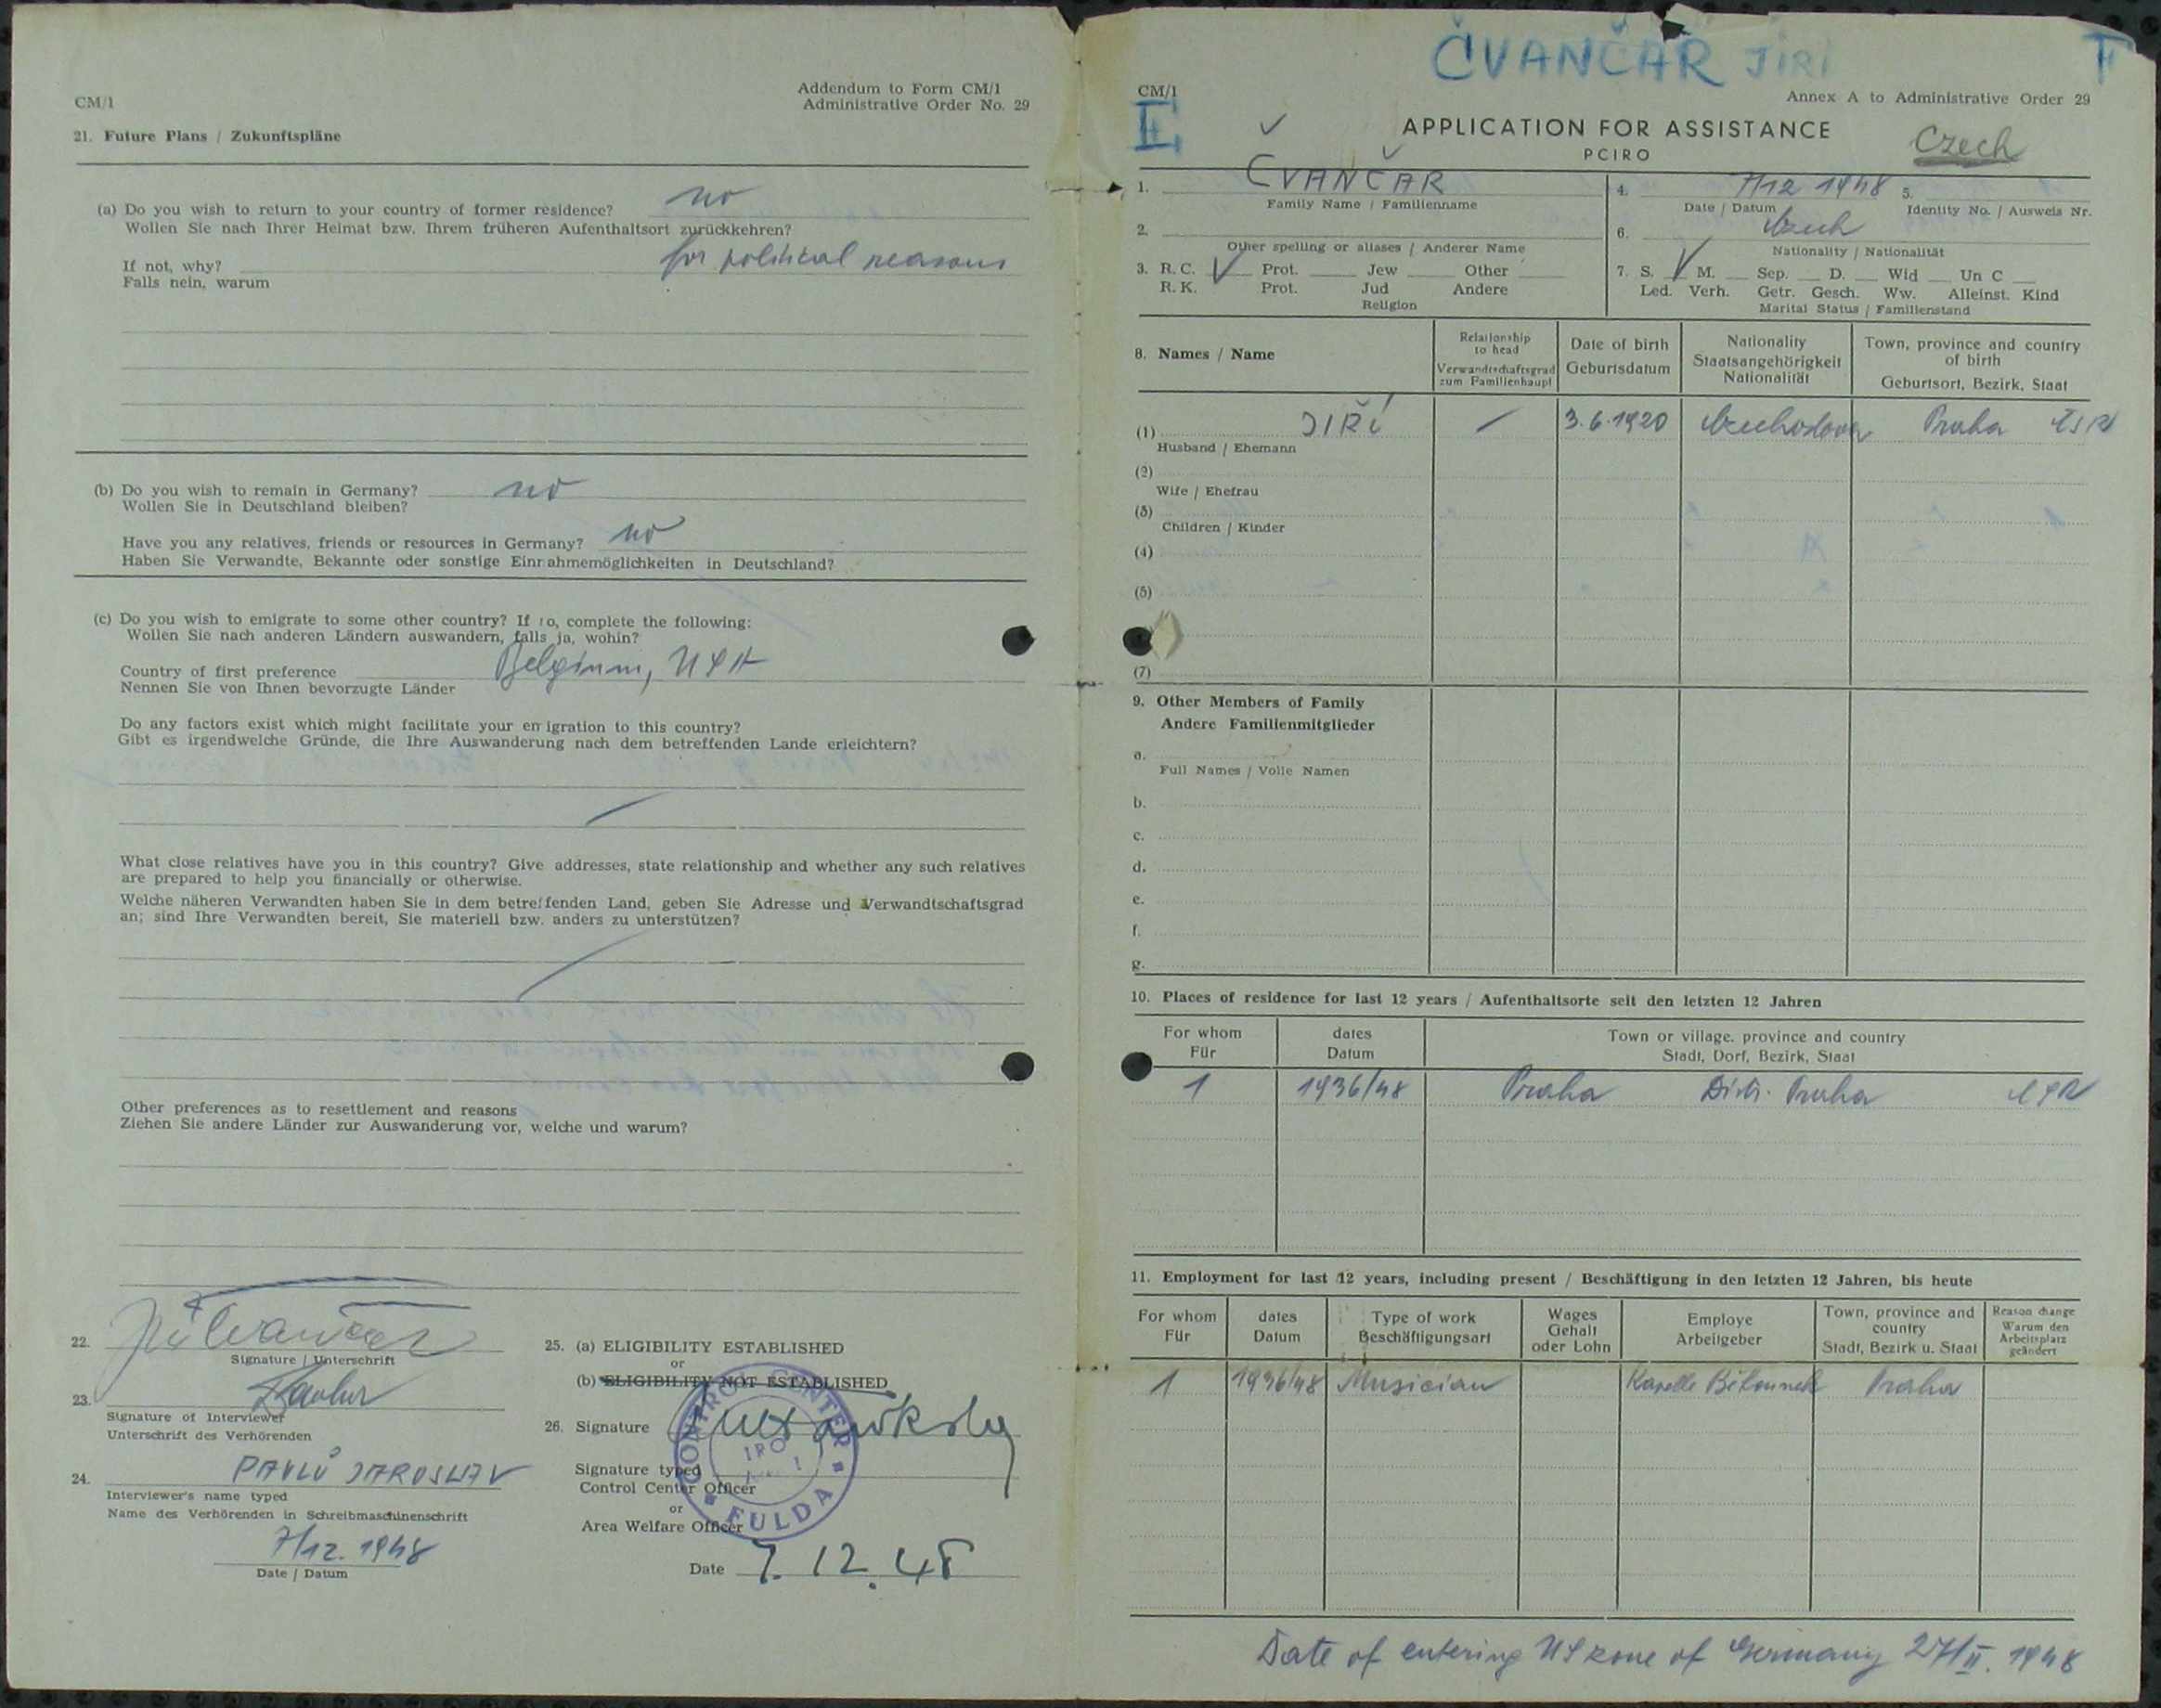 CM/1
Addendum to Form CM/1
Administrative Order No. 29
21. Future Plans / Zukunftspläne
(a) Do you wish to return to your country of former residence? no
Wollen Sie nach Ihrer Heimat bzw. Ihrem früheren Aufenthaltsort zurückkehren?
If not, why? for political reasons
Falls nein, warum
(b) Do you wish to remain in Germany? no
Wollen Sie in Deutschland bleiben?
Have you any relatives, friends or resources in Germany? no
Haben Sie Verwandte, Bekannte oder sonstige Einnahmemöglichkeiten in Deutschland?
(c) Do you wish to emigrate to some other country? If so, complete the following:
Wollen Sie nach anderen Ländern auswandern, falls ja, wohin?
Country of first preference Belgium, USA
Nennen Sie von Ihnen bevorzugte Länder
Do any factors exist which might facilitate your emigration to this country?
Gibt es irgendwelche Gründe, die Ihre Auswanderung nach dem betreffenden Lande erleichtern?
What close relatives have you in this country? Give addresses, state relationship and whether any such relatives
are prepared to help you financially or otherwise.
Welche näheren Verwandten haben Sie in dem betreffenden Land, geben Sie Adresse und Verwandtschaftsgrad
an; sind Ihre Verwandten bereit, Sie materiell bzw. anders zu unterstützen?
Other preferences as to resettlement and reasons
Ziehen Sie andere Länder zur Auswanderung vor, welche und warum?
22. Signature / Unterschrift
23. Signature of Interviewer
Unterschrift des Verhörenden
24. PAVLŮ JAROSLAV
Interviewer's name typed
Name des Verhörenden in Schreibmaschinenschrift
7/12. 1948
Date / Datum
25. (a) ELIGIBILITY ESTABLISHED
or
(b) ELIGIBILITY NOT ESTABLISHED
26. Signature
Signature typed
Control Center Officer
or
Area Welfare Officer
CONTROL CENTER
IRO
FULDA
Date 7. 12. 48
ČVANČAR JIŘI
F
CM/1
E
Annex A to Administrative Order 29
APPLICATION FOR ASSISTANCE
PCIRO
Czech
1. ČVANČAR
Family Name / Familienname
4. 7/12 1948
Date / Datum
5.
Identity No. / Ausweis Nr.
2.
Other spelling or aliases / Anderer Name
6. Czech
Nationality / Nationalität
3. R. C. ✓ Prot. Jew Other
R. K. Prot. Jud Andere
Religion
7. S. ✓ M. Sep. D. Wid Un C
Led. Verh. Getr. Gesch. Ww. Alleinst. Kind
Marital Status / Familienstand
8. Names / Name
Relationship to head
Verwandtschaftsgrad zum Familienhaupt
Date of birth
Geburtsdatum
Nationality
Staatsangehörigkeit
Nationalität
Town, province and country of birth
Geburtsort, Bezirk, Staat
(1) JIŘÍ / 3.6.1920 Czechoslovak Praha ČSR
Husband / Ehemann
(2)
Wife / Ehefrau
(3)
Children / Kinder
(4)
(5)
(7)
9. Other Members of Family
Andere Familienmitglieder
a.
Full Names / Volle Namen
b.
c.
d.
e.
f.
g.
10. Places of residence for last 12 years / Aufenthaltsorte seit den letzten 12 Jahren
For whom
Für
dates
Datum
Town or village, province and country
Stadt, Dorf, Bezirk, Staat
1 1936/48 Praha Distr. Praha ČSR
11. Employment for last 12 years, including present / Beschäftigung in den letzten 12 Jahren, bis heute
For whom
Für
dates
Datum
Type of work
Beschäftigungsart
Wages
Gehalt
oder Lohn
Employe
Arbeitgeber
Town, province and country
Stadt, Bezirk u. Staat
Reason change
Warum den Arbeitsplatz geändert
1 1936/48 Musician Kapelle Praha
Date of entering US zone of Germany 27/II. 1948